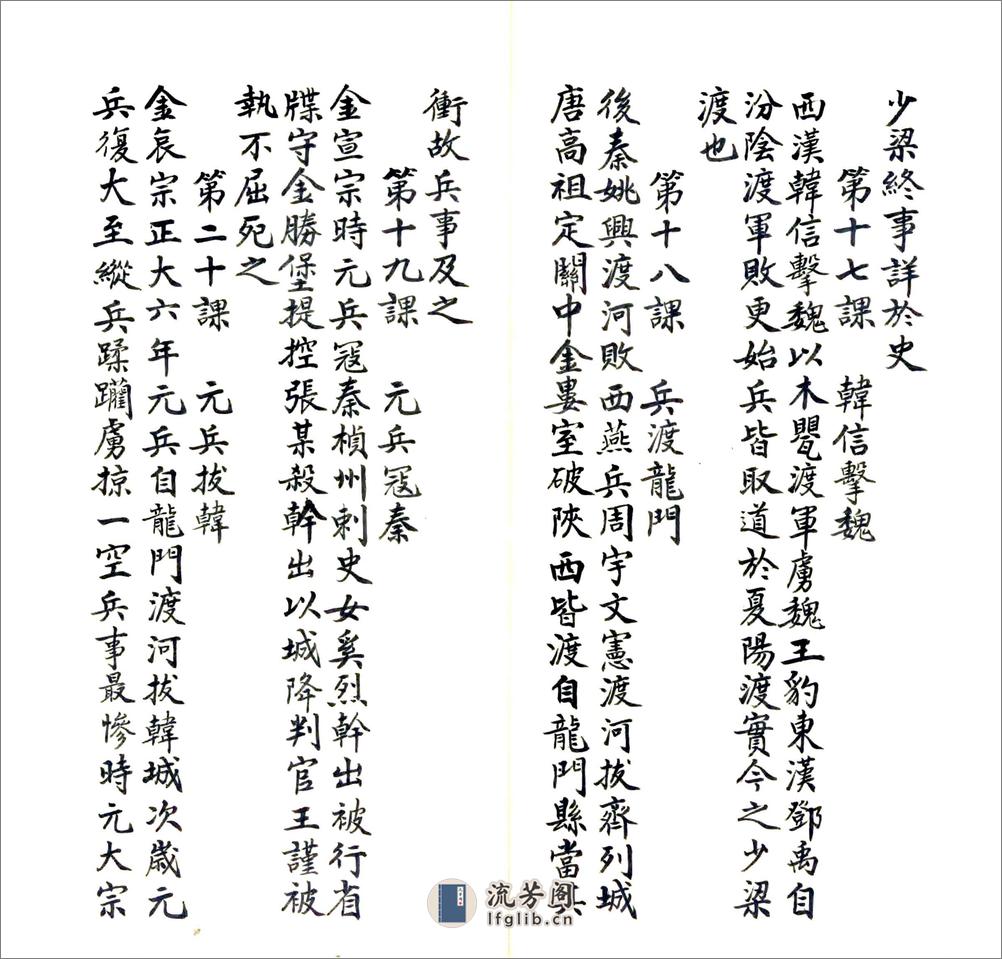 少梁終事詳於史
第十七課 韓信擊魏
西漢韓信擊魏以木甖渡軍虜魏王豹東漢鄧禹自
汾陰渡軍敗更始兵皆取道於夏陽渡實今之少梁
渡也
第十八課 兵渡龍門
後秦姚興渡河敗西燕兵周宇文憲渡河拔齊列城
唐高祖定關中金婁室破陝西皆渡自龍門縣當兵
衝故兵事及之
第十九課 元兵寇秦
金宣宗時元兵寇秦楨州刺史女奚烈幹出被行省
牒守金勝堡提控張某殺幹出以城降判官王謹被
執不屈死之
第二十課 元兵拔韓
金哀宗正大六年元兵自龍門渡河拔韓城次歲元
兵復大至縱兵蹂躪虜掠一空兵事最慘時元大宗
流芳阁
lfglib.cn